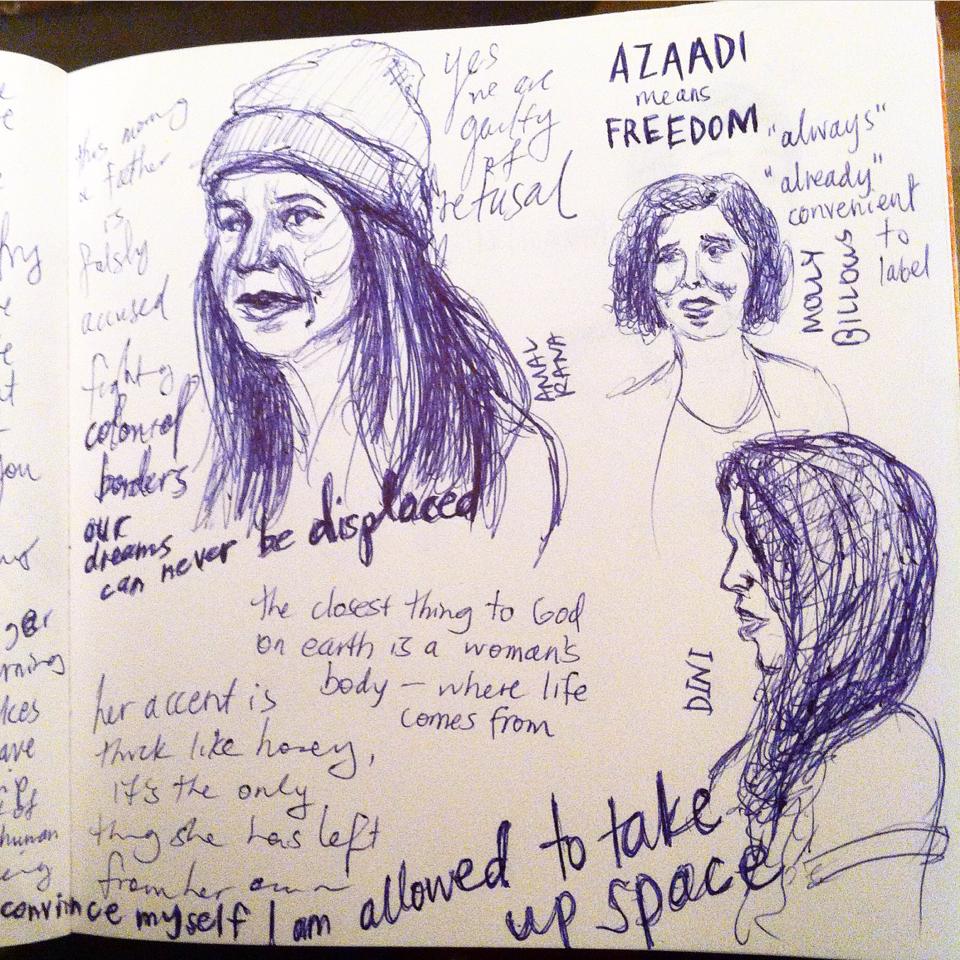 this morning
a father
is
falsly
accused
fighting
colonial
borders
our
dreams
can never be displaced
yes
we are
guilty
of
refusal
AMAL
RANA
AZAADI
means
FREEDOM
"always"
"already"
convenient
to
label
MOLLY
BILLOWS
the closest thing to God
on earth is a woman's
body – where life
comes from
DINI
her accent is
thick like honey,
it's the only
thing she has left
from her
convince myself I am allowed to take
up space
you
human